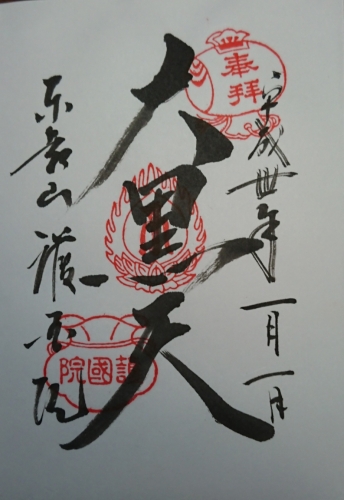 平成卅年一月一日
奉拝
大黒天
護國院
東叡山護国院